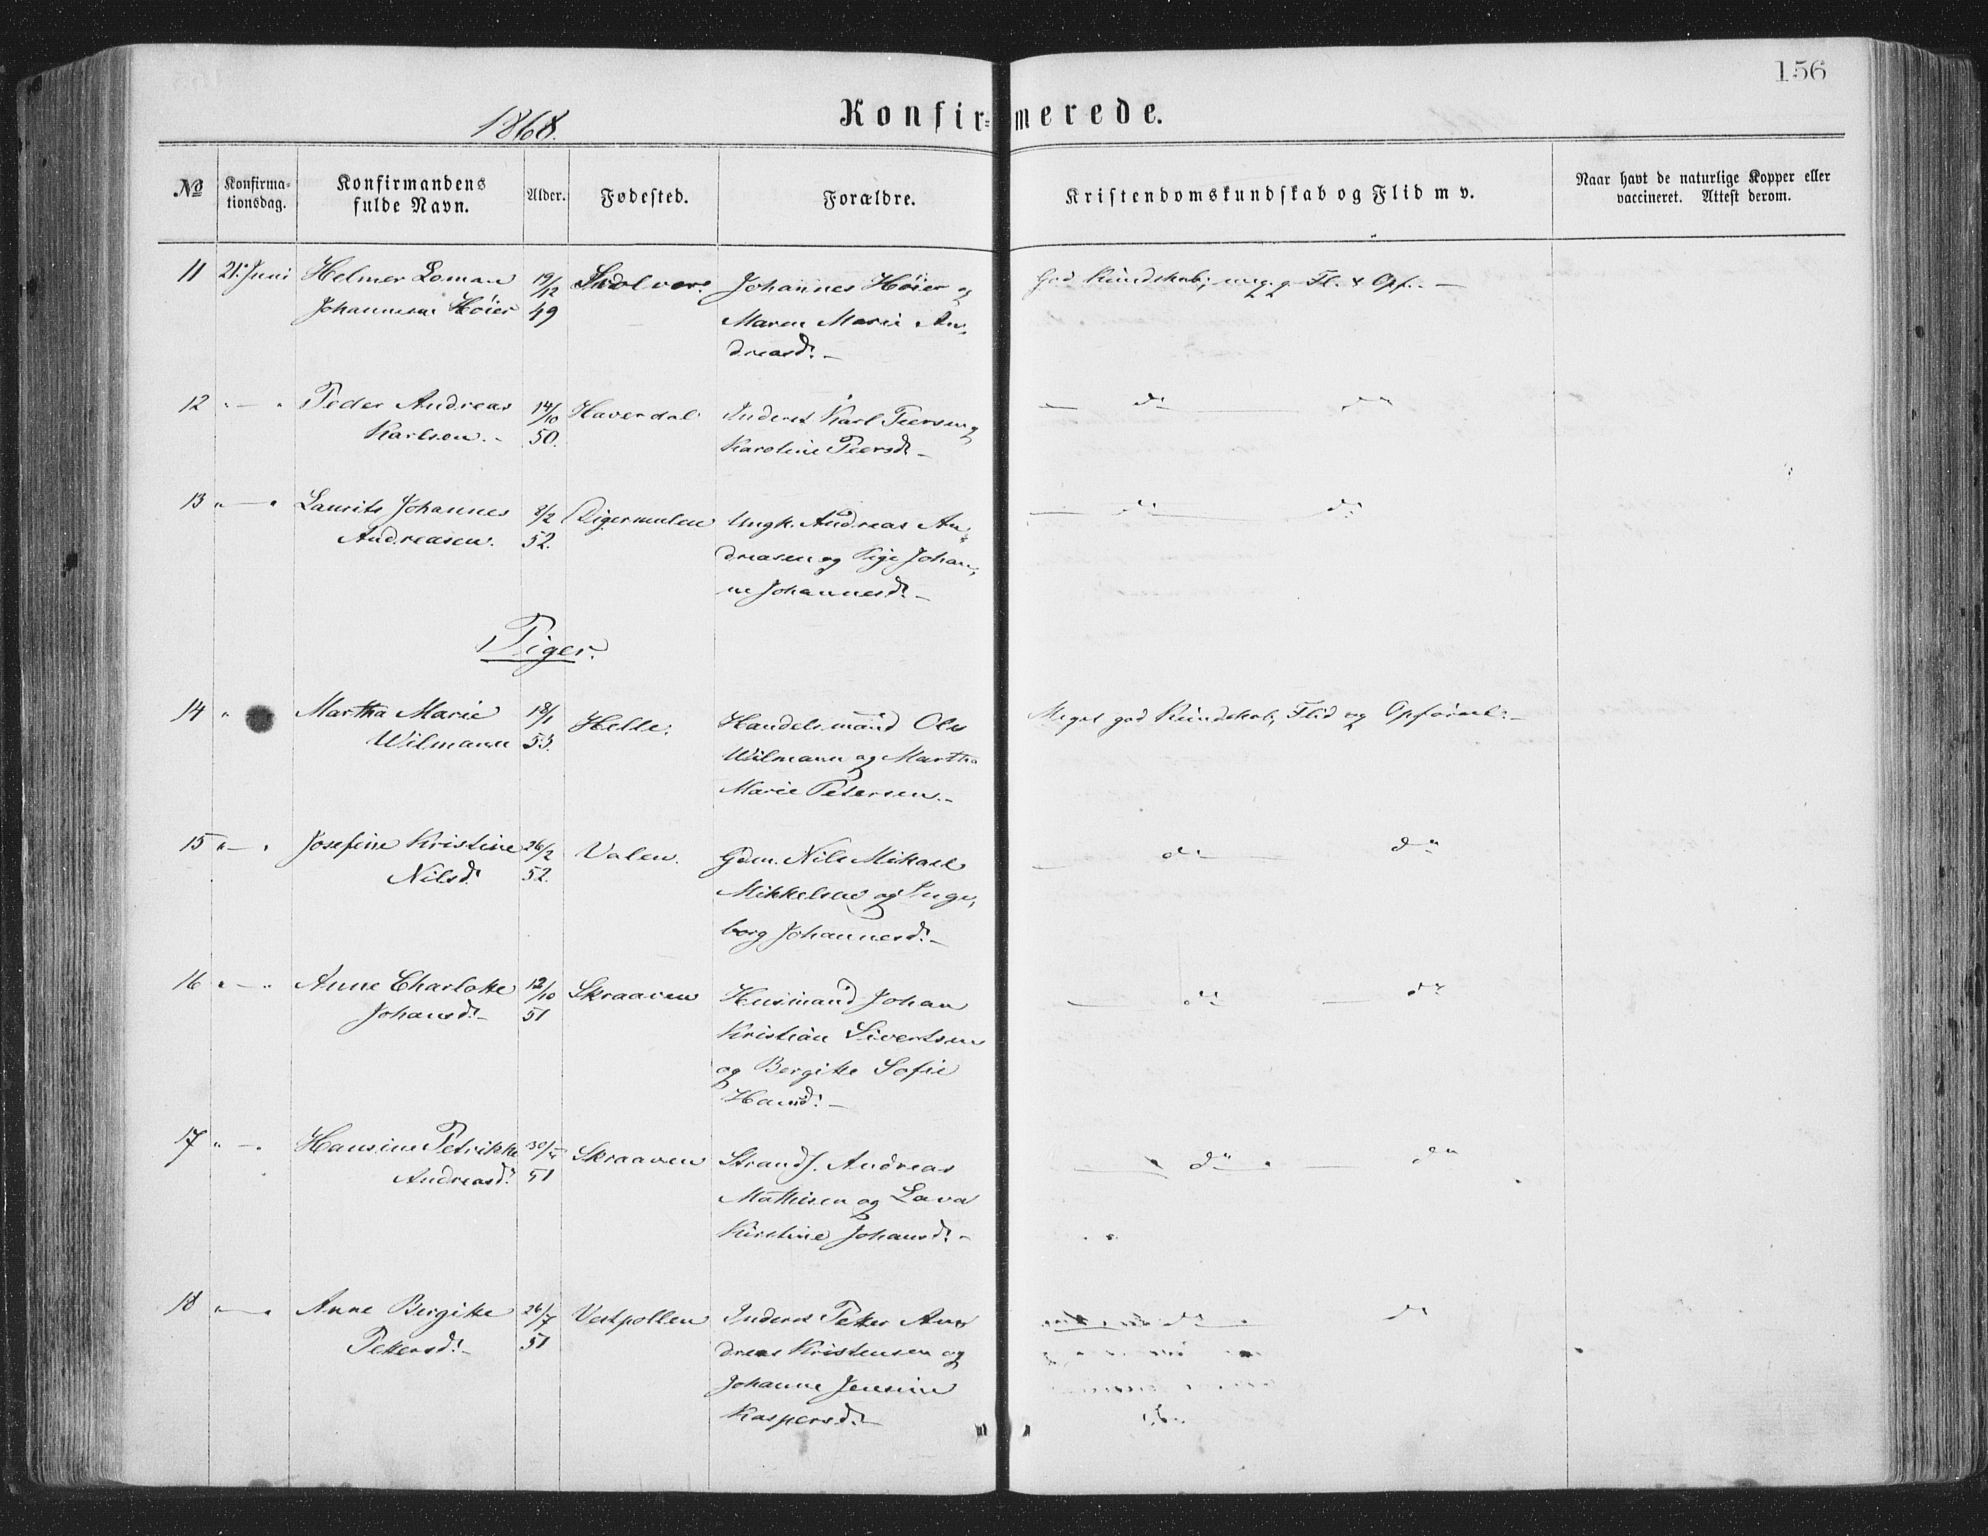 156
1868.
Konfirmerede.
№ Konfirmationsdag. Konfirmandens fulde Navn. Alder. Fødested. Forældre. Kristendomskundskab og Flid m v. Naar havt de naturlige Kopper eller vaccineret. Attest derom.
11 21. Juni Helmer Loman 19/12 Johannes Høier og God Kundskab; meg. g. Fl. & Opf. –
Johannesen Høier 49 Maren Marie An-
dreasd. –
12 " – " Peder Andreas 14/10 Haverdal Inderst Karl Peersen og – do do
Karlsen. – 50. Karoline Peersd. –
13 " – " Laurits Johannes 8/2 Digermulen Ungk. Andreas An- – do – do
Andreasen. 52. dreasen og Pige Johan-
ne Johannesd. –
Piger.
14 " Martha Marie 18/1 Helle. Handelsmand Ole Meget god Kundskab, Flid og Opførsel. –
Wilmann 53. Wilmann og Martha
Marie Petersen. –
15 " – " Josefine Kristine 26/2 Valen. Gdm. Nils Mikael – do – do
Nilsd. 52. Mikkelsen og Inge-
borg Johannesd. –
16 " – " Anne Charlotte 12/10 Skraaven Husmand Johan – do – do
Johansd. – 51 Kristian Sivertsen
og Bergitte Sofie
Hansd. –
17 " – " Hansine Petrikke Skraaven Strands. Andreas – do – do
Andreasd. 51 Mathisen og Lava
Kirstine Johansd. –
18 " – " Anne Bergitte 26/7 Vestpollen Inderst Petter An- do do
Pettersd. – 51 dreas Kristensen og
Johanne Jensine
Kaspersd. –